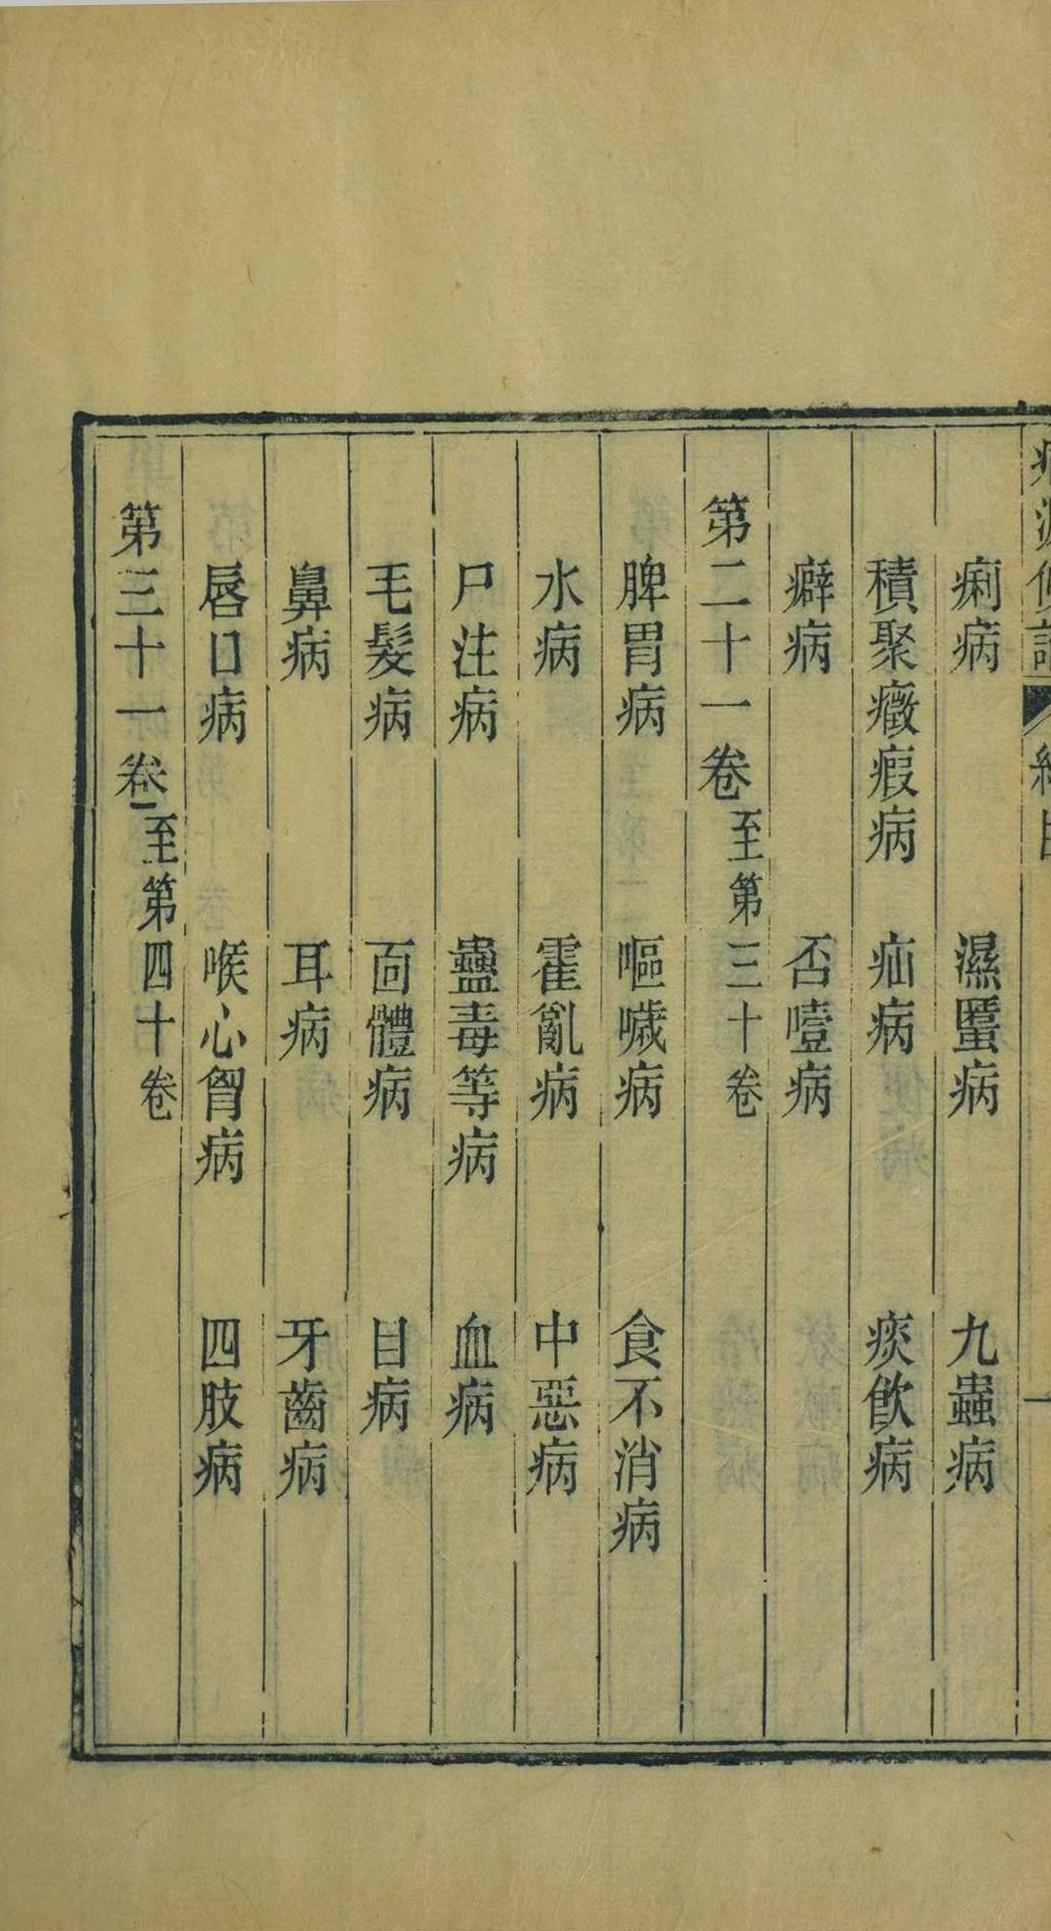 痢病 濕䘌病 九蟲病
積聚癥瘕病 疝病 痰飲病
癖病 否噎病
第二十一卷至第三十卷
脾胃病 嘔噦病 食不消病
水病 霍亂病 中惡病
尸注病 蠱毒等病 血病
毛髮病 面體病 目病
鼻病 耳病 牙齒病
唇口病 喉心胷病 四肢病
第三十一卷至第四十卷